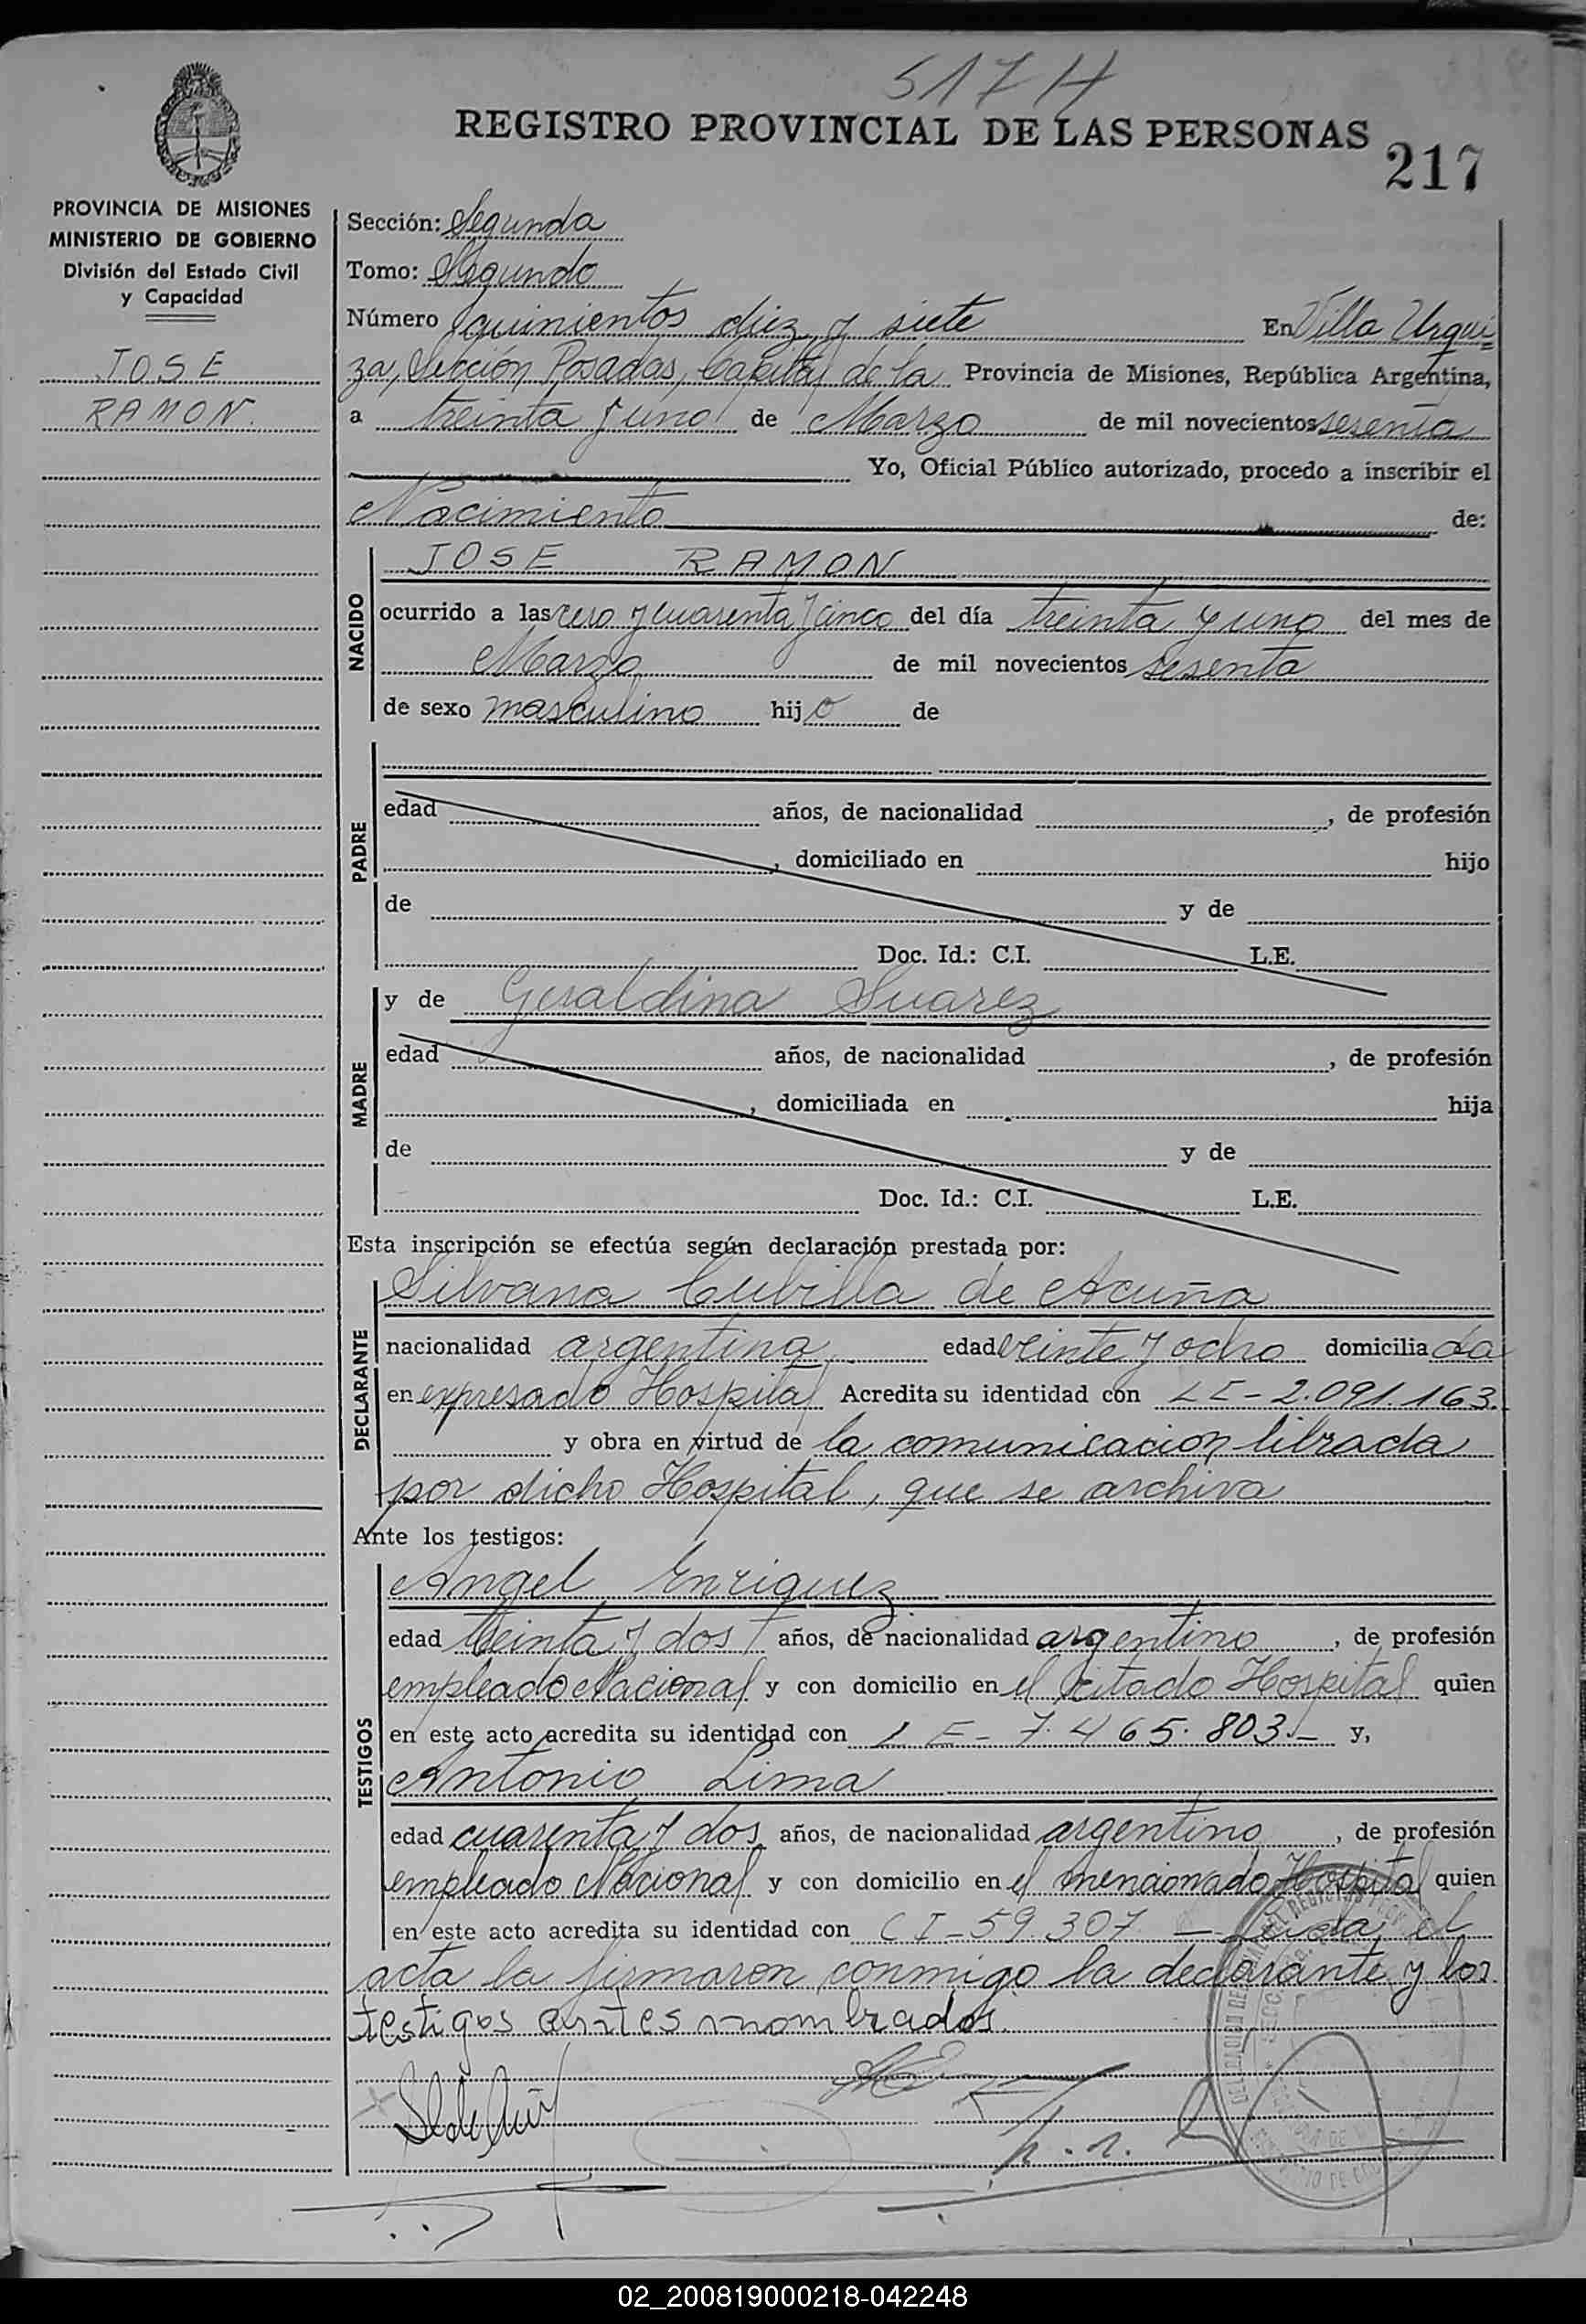 517 H
REGISTRO PROVINCIAL DE LAS PERSONAS
217
PROVINCIA DE MISIONES
MINISTERIO DE GOBIERNO
División del Estado Civil
y Capacidad
JOSE
RAMON.
Sección: Segunda
Tomo: Segundo
Número quinientos diez y siete En Villa Urqui=
za, Sección Posadas, Capital de la Provincia de Misiones, República Argentina,
a treinta y uno de Marzo de mil novecientos sesenta
Yo, Oficial Público autorizado, procedo a inscribir el
Nacimiento de:
NACIDO
JOSE RAMON
ocurrido a las cero y cuarenta y cinco del día treinta y uno del mes de
Marzo de mil novecientos sesenta
de sexo masculino hijo de
PADRE
edad años, de nacionalidad , de profesión
, domiciliado en hijo
de y de
Doc. Id.: C.I. L.E.
MADRE
y de Geraldina Suarez
edad años, de nacionalidad , de profesión
, domiciliada en hija
de y de
Doc. Id.: C.I. L.E.
Esta inscripción se efectúa según declaración prestada por:
DECLARANTE
Silvana Cubilla de Acuña
nacionalidad argentina edad veinte y ocho domiciliada
en expresado Hospital Acredita su identidad con LE - 2.091.163.
y obra en virtud de la comunicacion librada
por dicho Hospital, que se archiva
Ante los testigos:
TESTIGOS
Angel Enriquez
edad treinta y dos años, de nacionalidad argentino , de profesión
empleado Nacional y con domicilio en el citado Hospital quien
en este acto acredita su identidad con LE - 7.465.803.- y,
Antonio Lima
edad cuarenta y dos años, de nacionalidad argentino , de profesión
empleado Nacional y con domicilio en el mencionado Hospital quien
en este acto acredita su identidad con CI - 59.307 - Leida el
acta la firmaron conmigo la declarante y los
testigos antes nombrados.
02_200819000218-042248